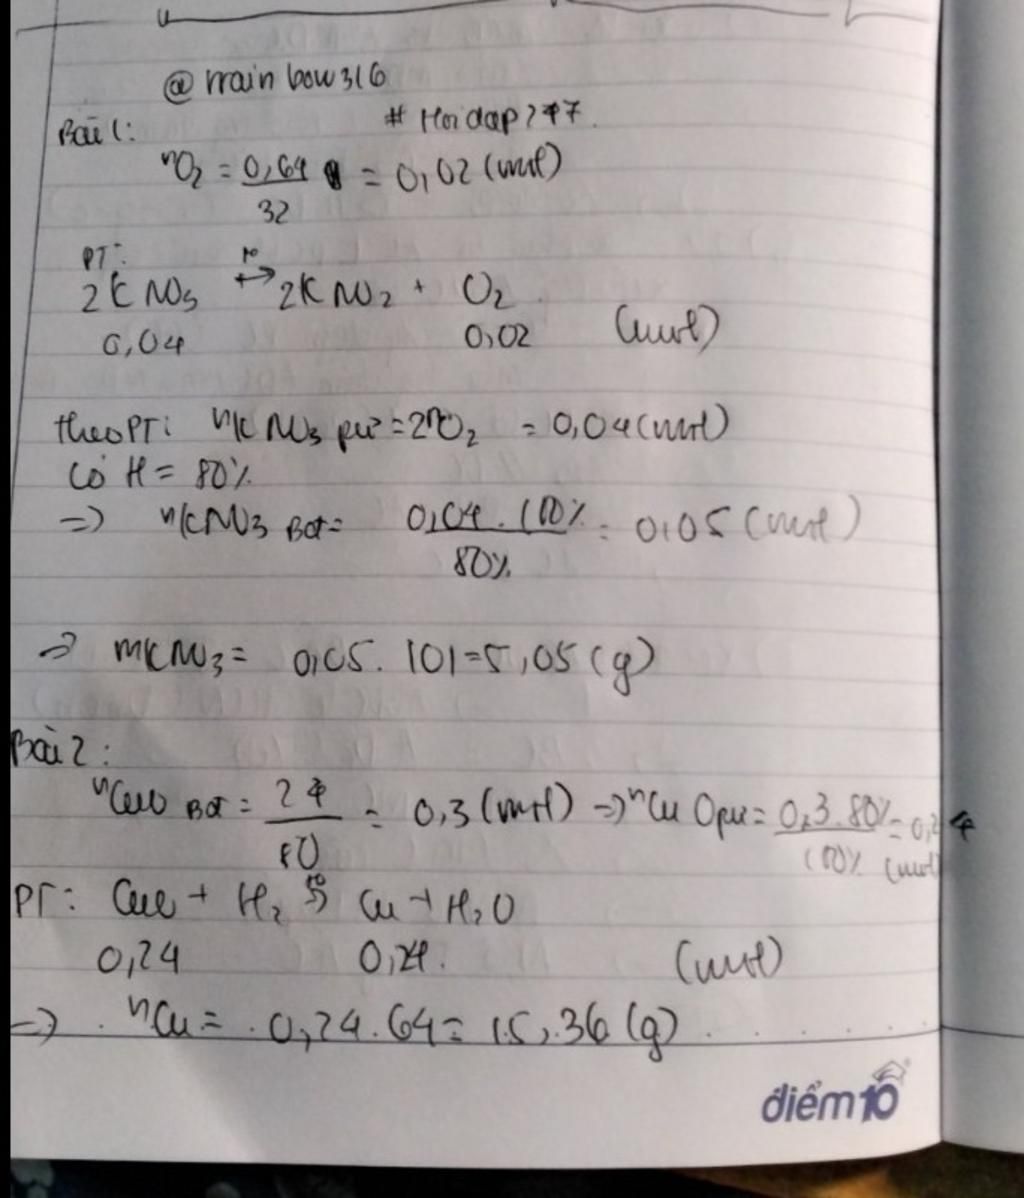 @ rrain bow 316
# Hoidap247
Bài 1:
nO₂ = 0,64/32 = 0,02 (mol)
PT:
2KNO₃ t°→ 2KNO₂ + O₂
0,04 0,02 (mol)
theo PT: nKNO₃ pư = 2nO₂ = 0,04 (mol)
Có H = 80%
=> nKNO₃ BĐ = 0,04.100%/80% = 0,05 (mol)
=> mKNO₃ = 0,05. 101 = 5,05 (g)
Bài 2:
nCuO BĐ = 24/80 = 0,3 (mol) => nCuO pư = 0,3.80%/100% = 0,24 (mol)
PT: CuO + H₂ t°→ Cu + H₂O
0,24 0,24. (mol)
=> nCu = 0,24.64 = 15,36 (g)
điểm10